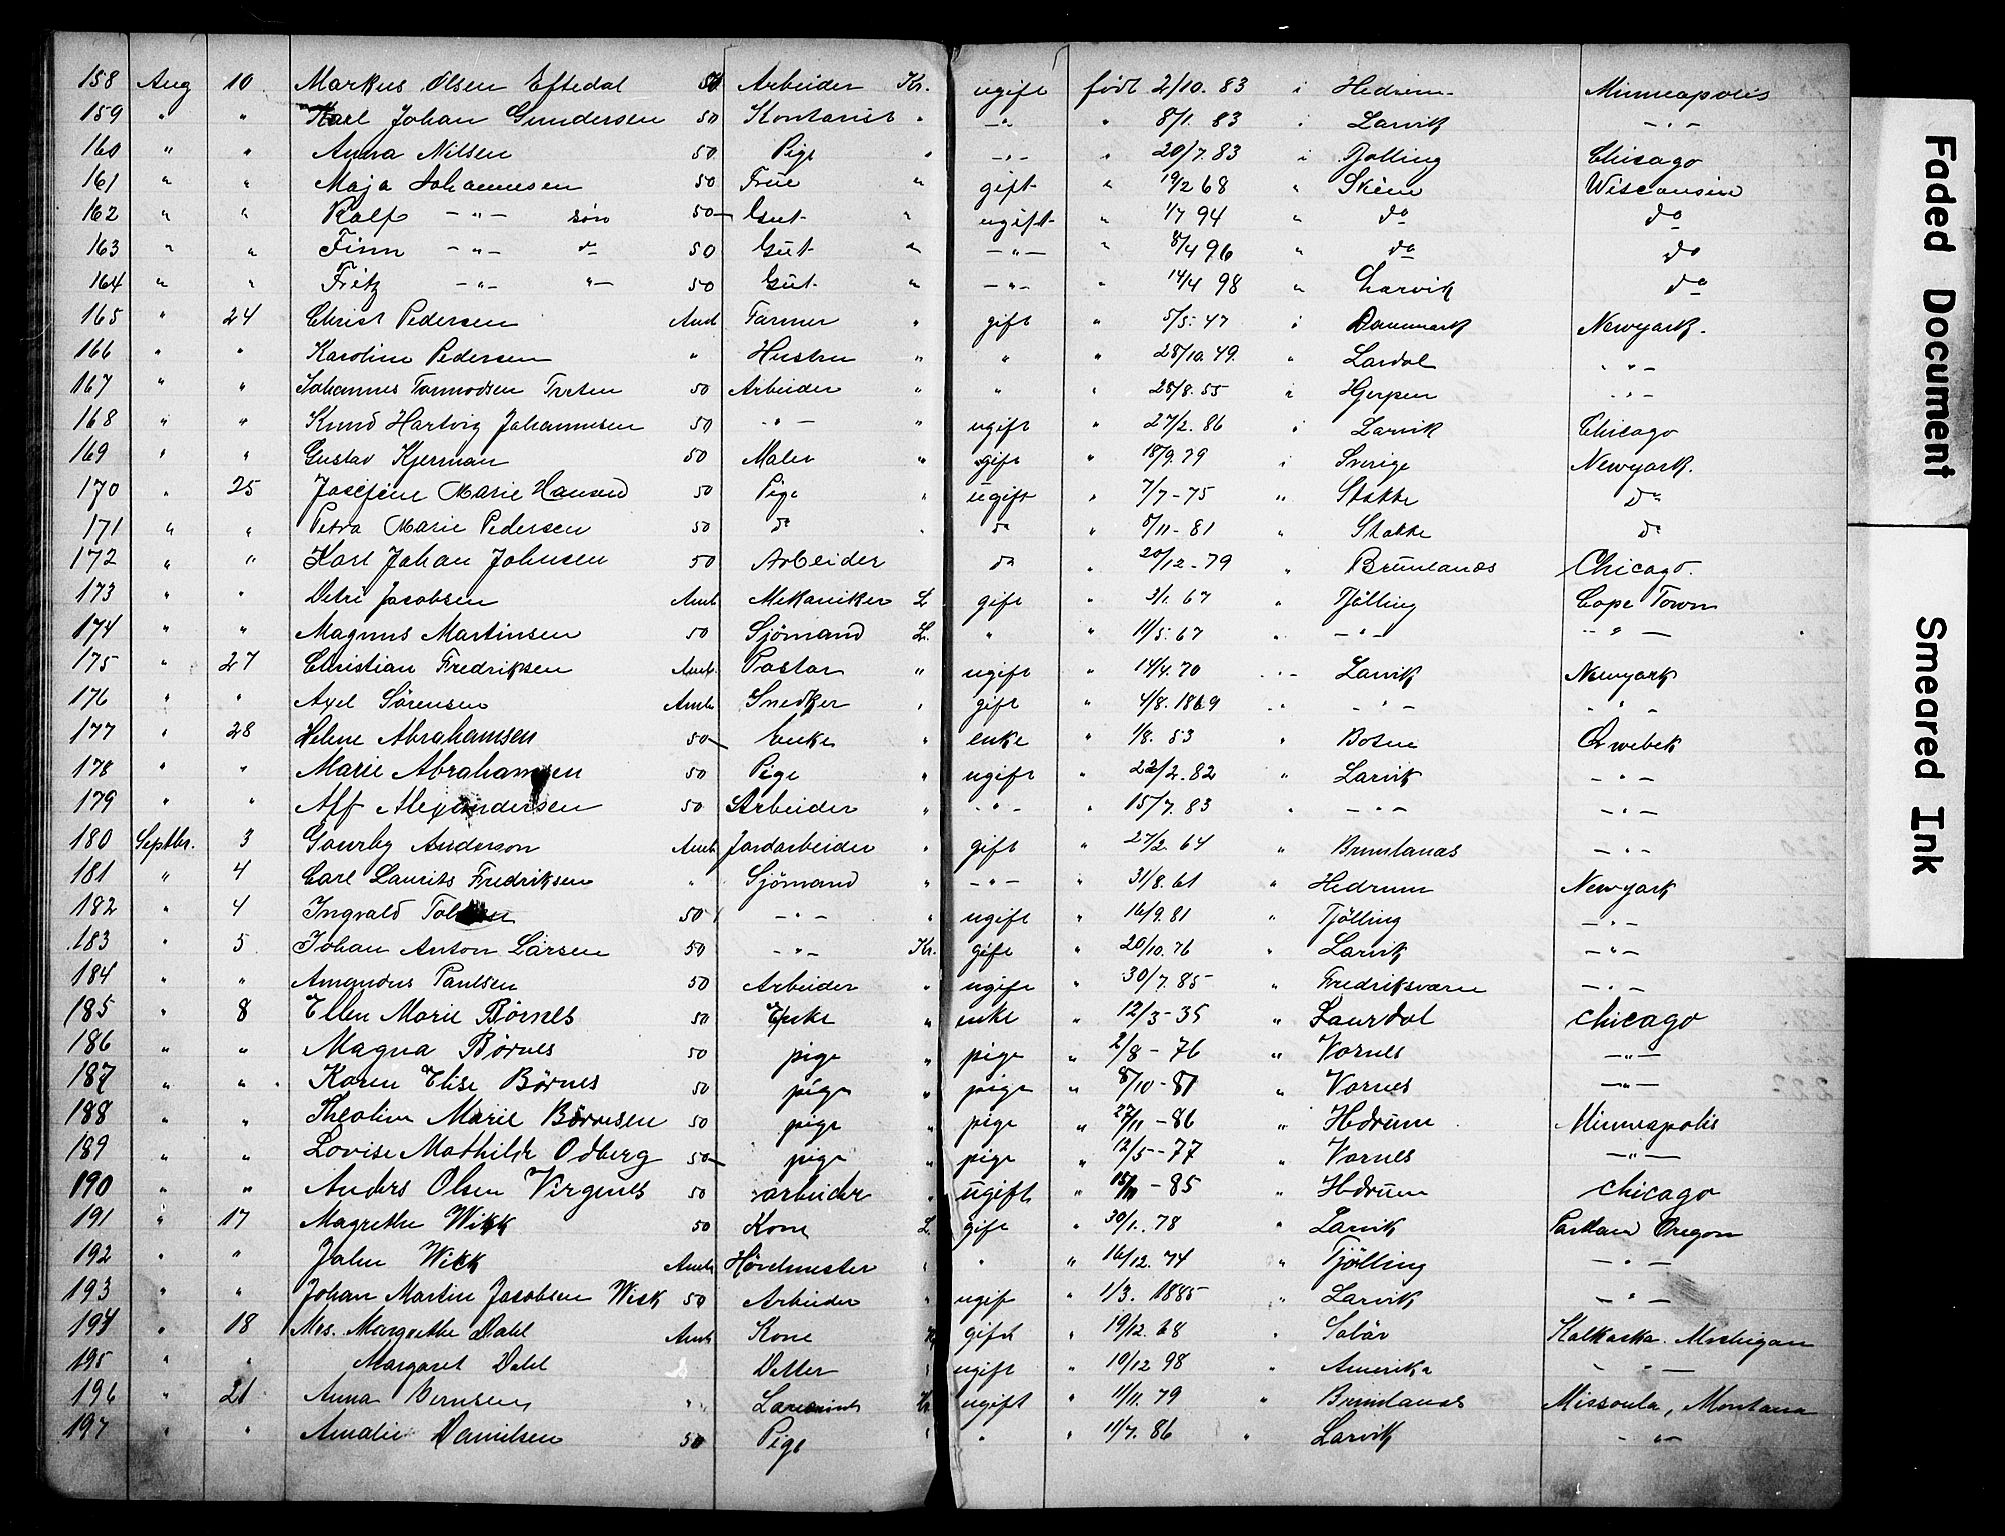 158 Aug 10 Markus Olsen Eftedal 50 Arbeider Kr. ugift født 2/10. 83 i Hedrum Minneapolis
159 " " Karl Johan Gundersen 50 Kontorist " — " — " 8/1. 83 i Larvik — " —
160 " " Anna Nilsen 50 Pige " — " — " 20/7. 83 i Tjølling Chicago
161 " " Maja Johannesen 50 Frue " gift " 19/2 68 " Skien Wisconsin
162 " " Rolf — " — søn 50 Gut " ugift " 1/7 94 " do do
163 " " Finn — " — do 50 Gut " — " — " 8/4 96 " do do
164 " " Fritz — " — " 50 Gut " — " — " 14/4 98 " Larvik do
165 " 24 Christ Pedersen Amb Farmer " gift " 5/5. 47 i Danmark Newyork.
166 " " Karoline Pedersen " Hustru " " " 28/10. 49. " Lardal " " "
167 " " Johannes Tormodsen Tveten 50 Arbeider " " " 28/8. 55 i Hjerpen " " "
168 " " Knud Hartvig Johannesen 50 " " — " ugift " 27/2. 86 i Larvik Chicago
169 " " Gustav Kjerman 50 Maler " gift " 18/9. 79 i Sverige Newyork.
170 " 25 Josefine Marie Hansen 50 Pige " ugift " 7/7 - 75 " Stokke do
171 " " Petra Marie Pedersen 50 do " do " 8/11 - 81 " Stokke do
172 " " Karl Johan Johnsen 50 Arbeider do " 20/12 - 79 " Brunlanæs Chicago.
173 " " Petri Jacobsen Amb Mekaniker L gift " 3/1. 67 " Tjølling Cape Town
174 " " Magnus Martinsen 50 Sjömand L. " " 11/5. 67 " — " — " " —
175 " 27 Christian Fredriksen Amb. Pastor " ugift " 14/4. 70 " Larvik Newyork
176 " " Axel Sørensen Amb Snedker " gift " 4/8. 1869 " " — " — " " "
177 " 28 Helene Abrahamsen 50 Enke " enke " 1/8. 53 " Botne Qwebek
178 " " Marie Abrahamsen 50 Pige " ugift " 22/2. 82 " Larvik — " —
179 " " Alf Alexandersen 50 Arbeider " " " - " 15/7. 83 " — " — — " —
180 Septbr. 3 Anderson Amb Jordarbeider " gift " 27/2. 64 " Brunlanæs — " —
181 " 4 Carl Laurits Fredriksen " Sjömand " — " — " 31/8. 61 " Hedrum Newyork
182 " 4 Ingvald 50 — " — " ugift " 16/9. 81 " Tjölling — " —
183 " 5 Johan Anton Larsen 50 — " — Kr. gift " 20/10. 76 " Larvik — " —
184 " " Amandus Paulsen 50 Arbeider " ugift " 30/7. 85 " Fredriksværn — " —
185 " 8 Ellen Marie Børnes 50 Enke " enke " 12/3 - 35 " Laurdal Chicago
186 " " Magna Børnes 50 pige " pige " 2/8 - 76 " Vornes — " —
187 " " Karen Elise Børnes 50 pige " pige " 8/10 - 81 " Vornes — " —
188 " " Theoline Marie Børnesen 50 pige " pige " 27/11 - 86 " Hedrum Minneapolis
189 " " Lovise Mathilde Odberg 50 pige " pige " 12/5 - 77 " Vornes — " —
190 " " Anders Olsen Virgenes 50 arbeider " ugift " - 85 " Hedrum Chicago
191 " 17 Magrethe Wikk 50 Kone L. gift " 30/1. 78 " Larvik Portlan Oregon
192 " " John Wick Amb " " " 16/12. 74 " Tjölling — " —
193 " " Johan Martin Jacobsen Wick 50 Arbeider " ugif " 1/3. 1885 " Larvik — " —
194 " 18 Mrs. Margrethe Dahl Amb Kone gift " 19/12. 68 " Kalkaska. Michigan
195 " " Margaret Dahl Datter " ugift " 19/12 98 " Amerika " " —
196 " 21 Anna Bernsen " " Kr ugift " 11/11. 79 " Brunlanæs Missoula, Montana
197 " " Amalie Danielsen 50 Pige " " " 11/7. 86 " Larvik — " —
Faded Document
Smeared Ink